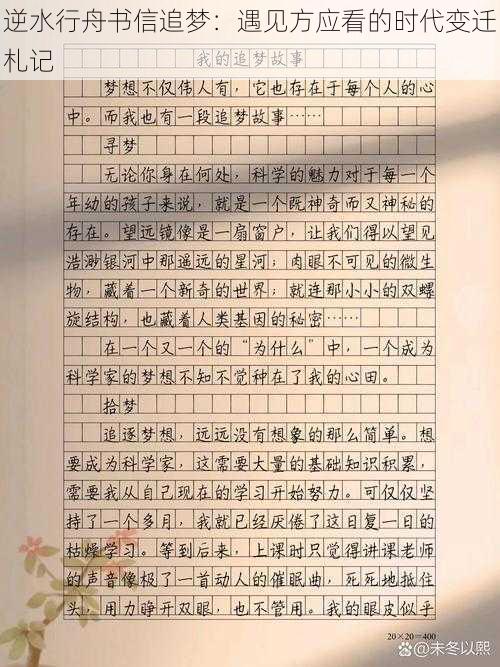 逆水行舟书信追梦：遇见方应看的时代变迁
札记
我的追梦故事
梦想不仅伟人有，它也存在于每个人的心
中。而我也有一段追梦故事……
寻梦
无论你身在何处，科学的魅力对于每一个
年幼的孩子来说，就是一个既神奇而又神秘的
存在。望远镜像是一扇窗户，让我们得以望见
浩渺银河中那遥远的星河；肉眼不可见的微生
物，藏着一个新奇的世界；就连那小小的双螺
旋结构，也藏着人类基因的秘密……
在一个又一个的“为什么”中，一个成为
科学家的梦想不知不觉种在了我的心田。
拾梦
追逐梦想，远远没有想象的那么简单。想
要成为科学家，这需要大量的基础知识积累，
需要我从自己现在的学习开始努力。可仅仅坚
持了一个多月，我就已经厌倦了这日复一日的
枯燥学习。等到后来，上课时只觉得讲课老师
的声音像极了一首动人的催眠曲，死死地抵住
头，用力睁开双眼，也不管用。我的眼皮似乎
20×20=400
@未冬以熙